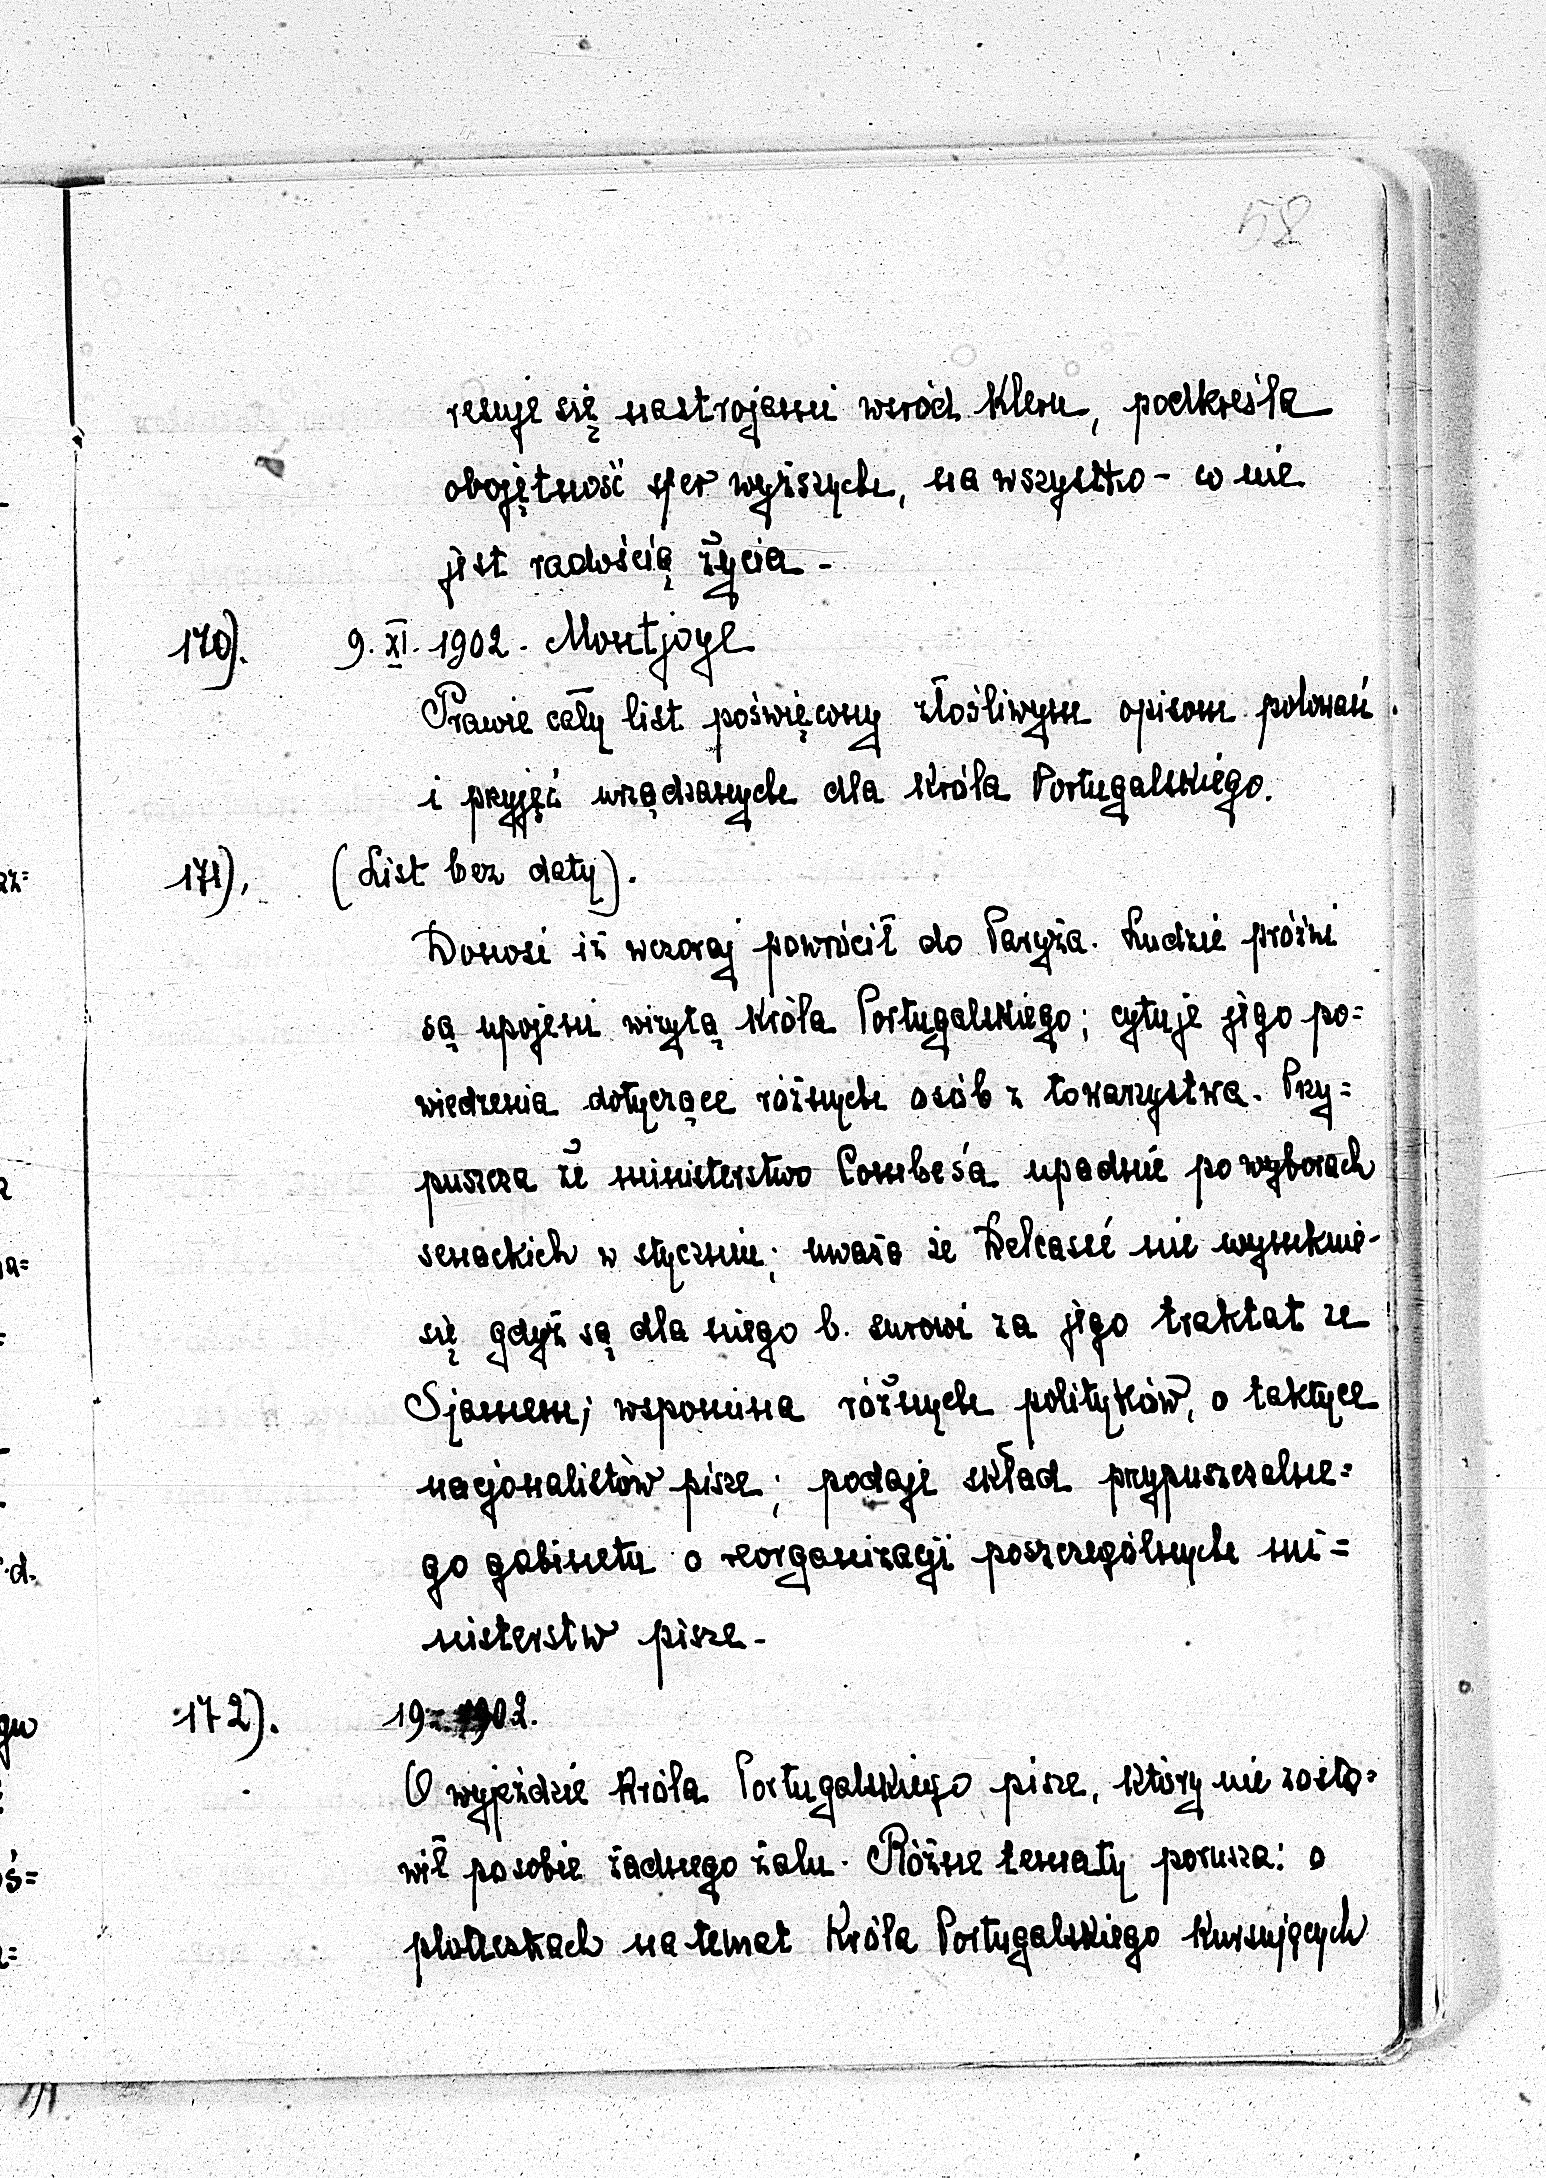 58
resuje się nastrojami wsród kleru, podkreśla
obojętność sfer wyższych, na wszystko - co nie
jest radością życia -
170). 9. XI. 1902. Montjoye
Prawie cały list poświęcony złośliwym opisom polowań
i przyjęć urządzanych dla Króla Portugalskiego.
171). (List bez daty).
Donosi iż wczoraj powrócił do Paryża. Ludzie próżni
są upojeni wizytą Króla Portugalskiego; cytuje jego po=
wiedzenia dotyczące różnych osób z towarzystwa. Przy=
puszcza że ministerstwo Combes'a upadnie po wyborach
senackich w styczniu; uważa że Delcassé nie wymknie
się gdyż są dla niego b. surowi za jego traktat ze
Sjamem; wspomina różnych polityków, o taktyce
nacjonalistów pisze; podaje skład przypuszczalne=
go gabinetu o reorganizacji poszczególnych mi=
nisterstw pisze -
172). 19 1902.
O wyjeździe Króla Portugalskiego pisze, który nie zosta=
wił po sobie żadnego żalu. Różne tematy porusza: o
ploteczkach na temat Króla Portugalskiego kursujących